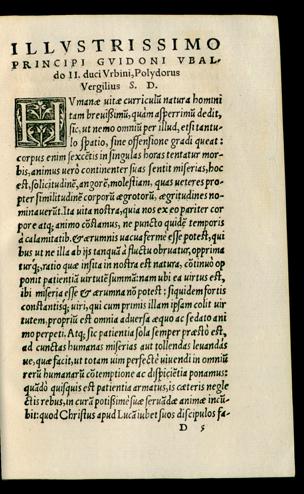 ILLVSTRISSIMO
PRINCIPI GVIDONI VBAL-
do II. duci Vrbini, Polydorus
Vergilius S. D.
HVmanæ uitæ curriculũ natura homini
tam breuißimũ, quàm asperrimũ dedit,
sic, ut nemo omniũ per illud, etsi tantu-
lo spatio, sine offensione gradi queat:
corpus enim sexcẽtis in singulas horas tentatur mor-
bis, animus uerò continenter suas sentit miserias, hoc
est, solicitudinẽ, angorẽ, molestiam, quas ueteres pro-
pter similitudinẽ corporũ ægrotorũ, ægritudines no-
minauerũt. Ita uita nostra, quia nos ex eo pariter cor
pore atq; animo cõstamus, ne puncto quidẽ temporis
à calamitatib. & ærumnis uacua fermè esse potest, qui
bus ut ne illa ab ijs tanquã à fluctu obruatur, opprima
turq́;, ratio quæ insita in nostra est natura, cõtinuò op
ponit patientiã uirtutẽ summã: nam ubi ea uirtus est,
ibi miseria esse & ærumna nõ potest: siquidem fortis
constantisq; uiri, qui cum primis illam ipsam colit uir
tutem, propriũ est omnia aduersa æquo ac sedato ani
mo perpeti. Atq; sic patientia sola semper præstò est,
ad cunctas humanas miserias aut tollendas leuandás
ue, quæ facit, ut totam uim perfectè uiuendi in omniũ
rerũ humanarũ cõtemptione ac dispiciẽtia ponamus:
quãdò quisquis est patientia armatus, is cæteris negle
ctis rebus, in curã potißimè suæ seruãdæ animæ incũ-
bit: quod Christus apud Lucã iubet suos discipulos fa-
D 5